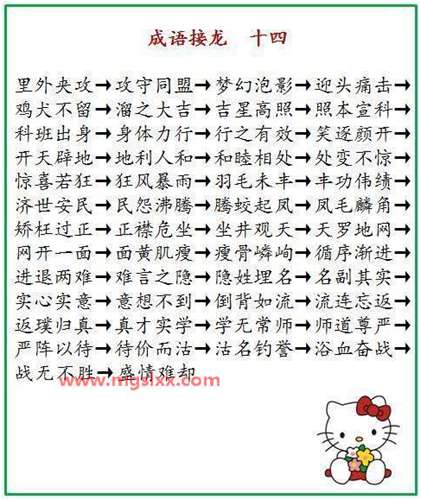 成语接龙 十四
里外夹攻→攻守同盟→梦幻泡影→迎头痛击→
鸡犬不留→溜之大吉→吉星高照→照本宣科→
科班出身→身体力行→行之有效→笑逐颜开→
开天辟地→地利人和→和睦相处→处变不惊→
惊喜若狂→狂风暴雨→羽毛未丰→丰功伟绩→
济世安民→民怨沸腾→腾蛟起凤→凤毛麟角→
矫枉过正→正襟危坐→坐井观天→天罗地网→
网开一面→面黄肌瘦→瘦骨嶙峋→循序渐进→
进退两难→难言之隐→隐姓埋名→名副其实→
实心实意→意想不到→倒背如流→流连忘返→
返璞归真→真才实学→学无常师→师道尊严→
严阵以待→待价而沽→沽名钓誉→浴血奋战→
战无不胜→盛情难却
www.mgslxx.com